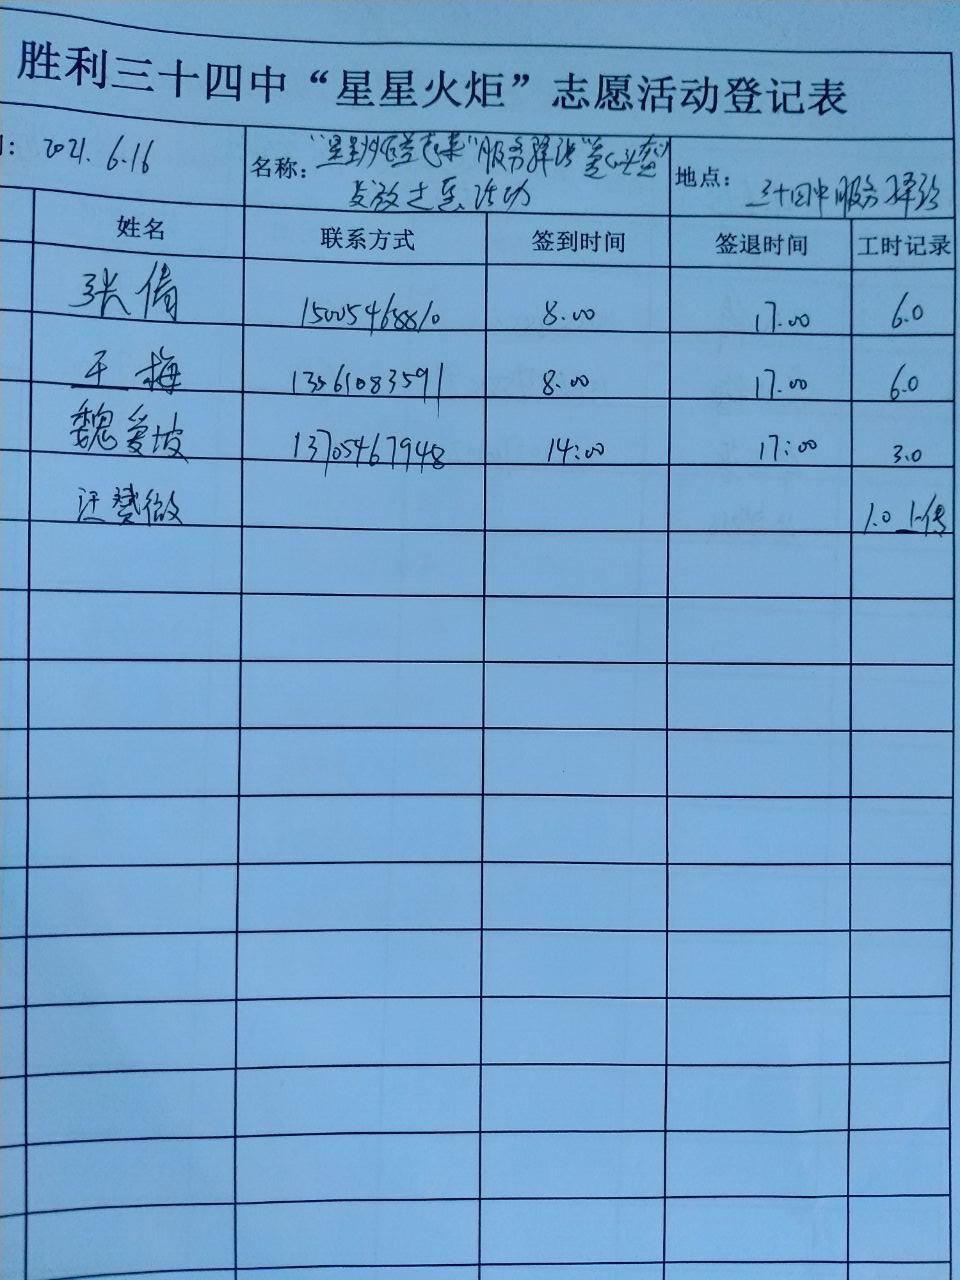 胜利三十四中“星星火炬”志愿活动登记表
: 2021. 6.16
名称: "星星火炬 起来"服务驿站"爱心
发放 活动
地点: 三十四中服务驿站
姓名 联系方式 签到时间 签退时间 工时记录
张倩 15005468810 8.00 17.00 6.0
王梅 13561083591 8.00 17.00 6.0
魏爱坡 13705467948 14:00 17:00 3.0
汪赞微 1.0 上传